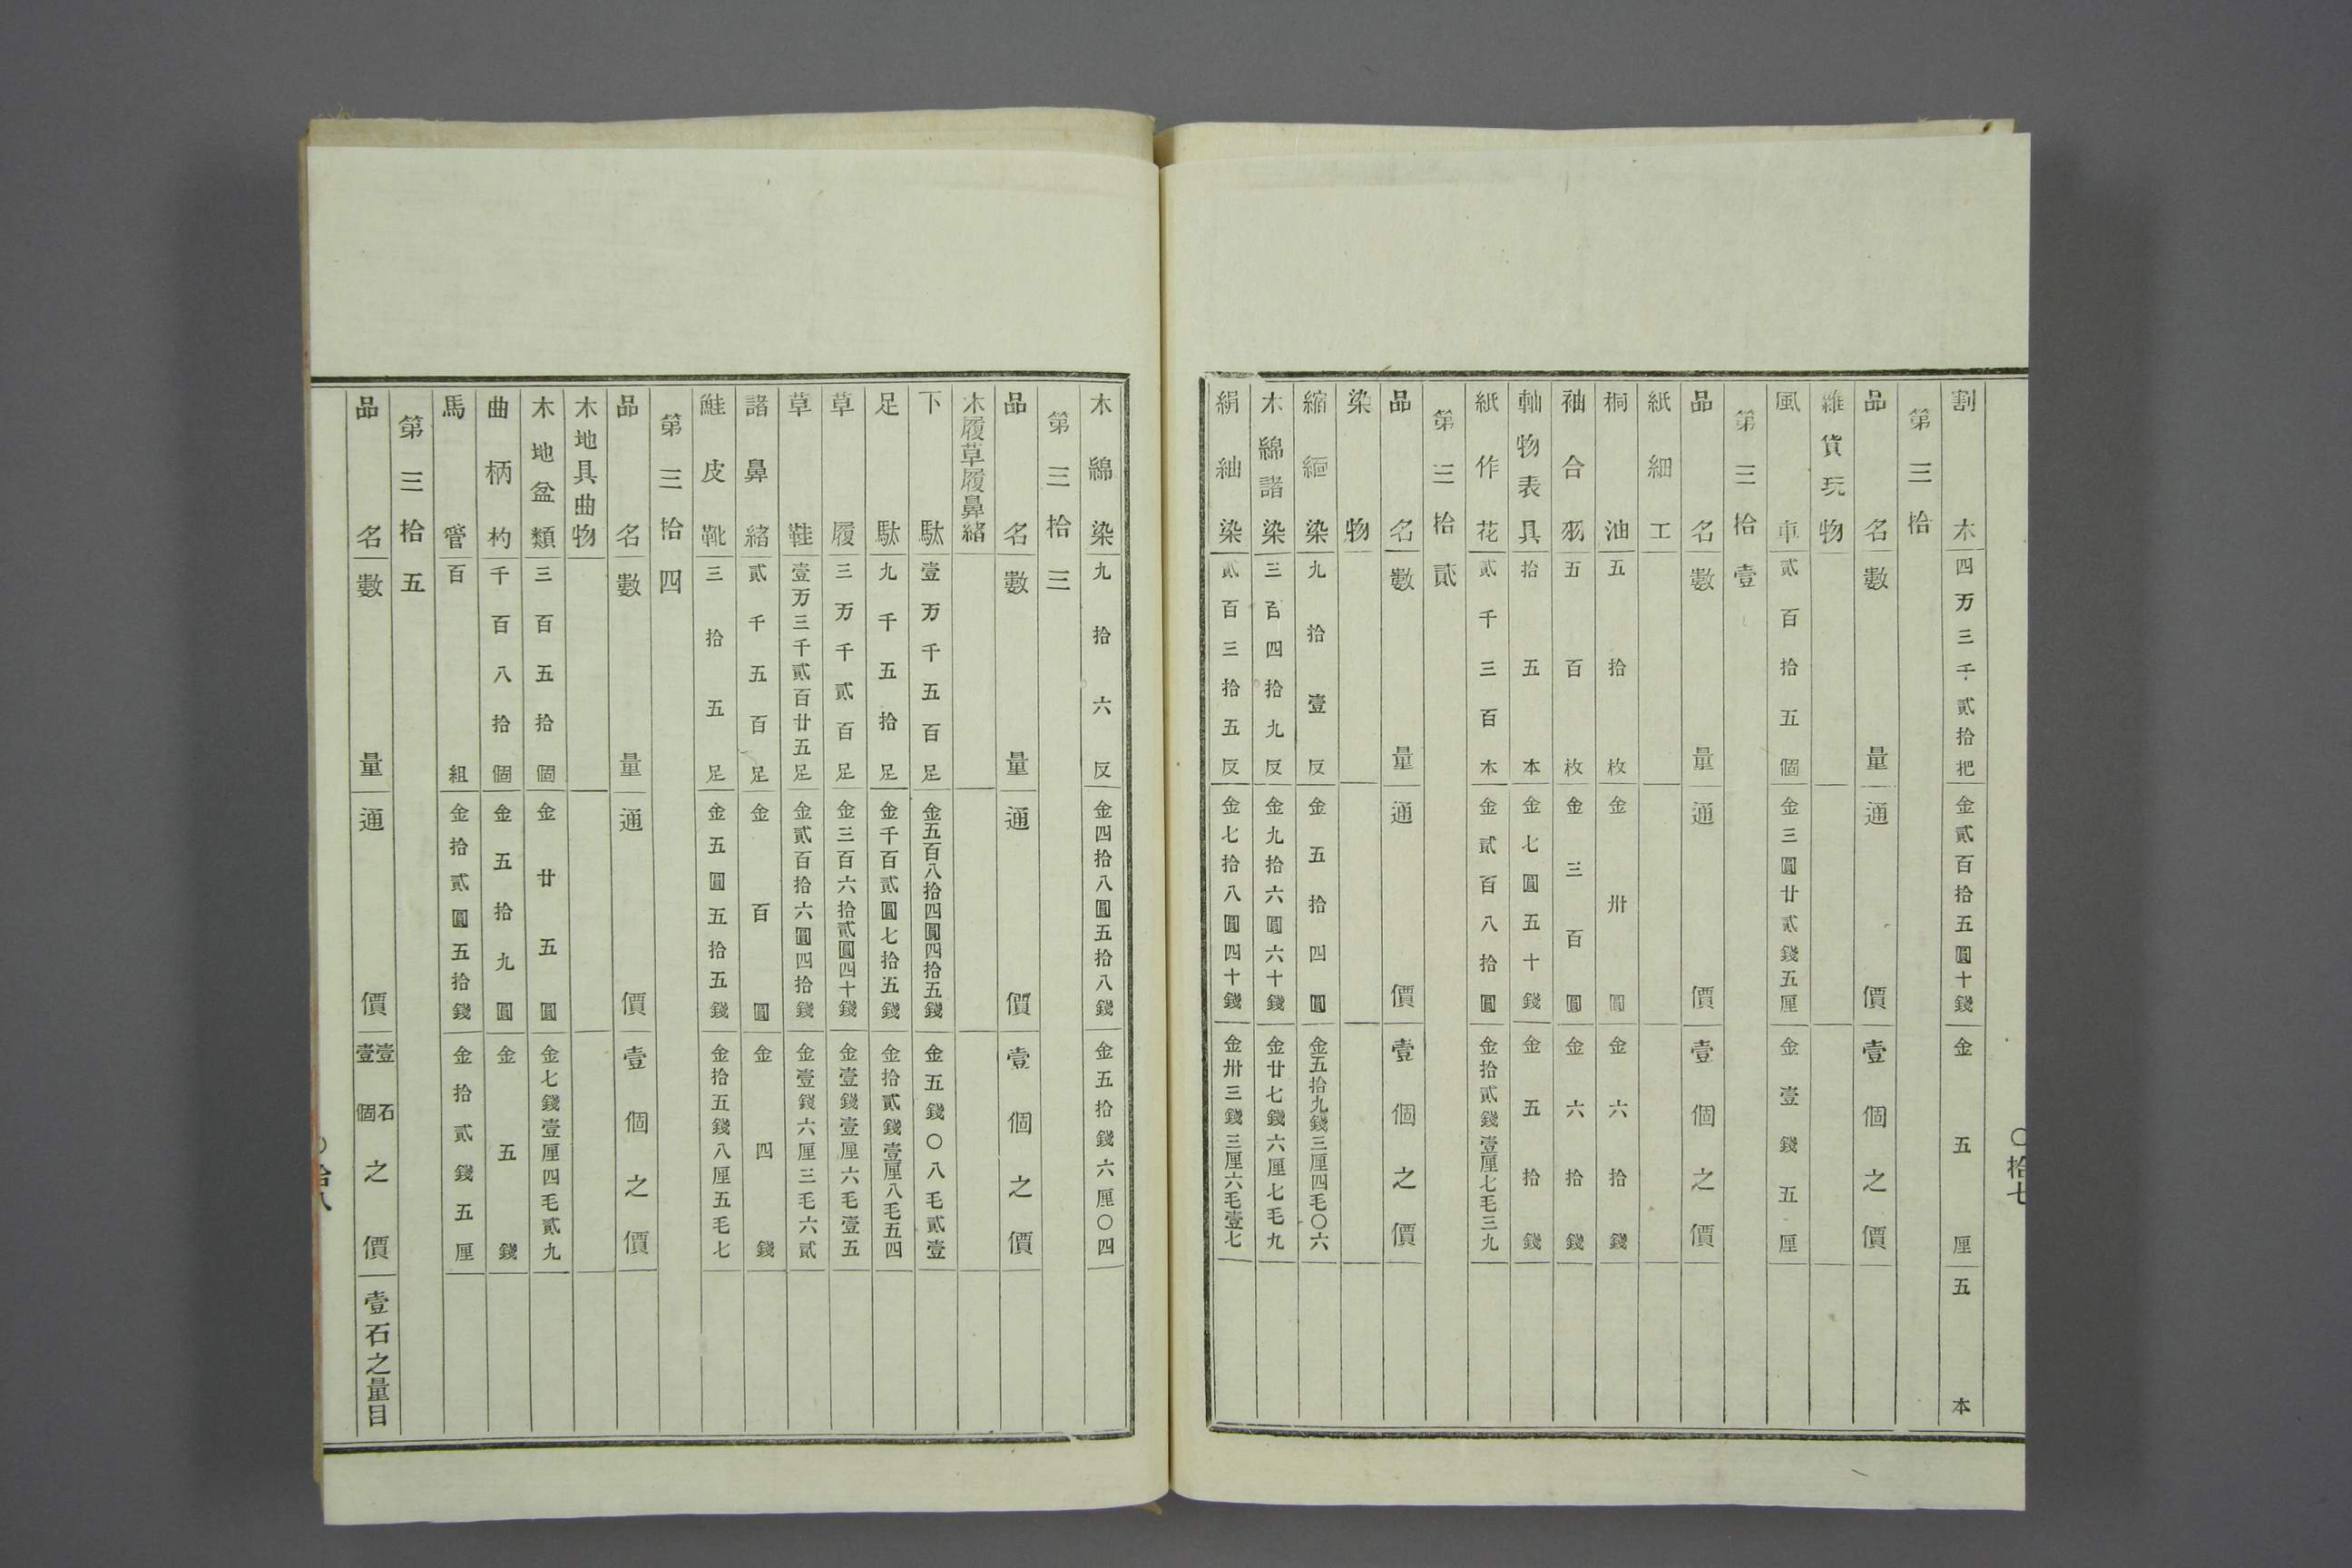 割木 四万三千貳拾把 金貳百拾五圓十錢 金五厘 五本
第三拾
品名 數量 通價 壹個之價
雜貨玩物
風車 貳百拾五個 金三圓廿貳錢五厘 金壹錢五厘
第三拾壹
品名 數量 通價 壹個之價
紙細工
桐油 五拾枚 金卅圓 金六拾錢
袖合羽 五百枚 金三百圓 金六拾錢
軸物表具 拾五本 金七圓五十錢 金五拾錢
紙作花 貳千三百木 金貳百八拾圓 金拾貳錢壹厘七毛三九
第三拾貳
品名 數量 通價 壹個之價
染物
縮緬染 九拾壹反 金五拾四圓 金五拾九錢三厘四毛〇六
木綿諸染 三百四拾九反 金九拾六圓六十錢 金廿七錢六厘七毛九
絹紬染 貳百三拾五反 金七拾八圓四十錢 金卅三錢三厘六毛壹七
〇拾七
木綿染 九拾六反 金四拾八圓五拾八錢 金五拾錢六厘〇四
第三拾三
品名 數量 通價 壹個之價
木履草履鼻緒
下駄 壹万千五百足 金五百八拾四圓四拾五錢 金五錢〇八毛貳壹
足駄 九千五拾足 金千百貳圓七拾五錢 金拾貳錢壹厘八毛五四
草履 三万千貳百足 金三百六拾貳圓四十錢 金壹錢壹厘六毛壹五
草鞋 壹万三千貳百廿五足 金貳百拾六圓四拾錢 金壹錢六厘三毛六貳
諸鼻緒 貳千五百足 金百圓 金四錢
鮭皮靴 三拾五足 金五圓五拾五錢 金拾五錢八厘五毛七
第三拾四
品名 數量 通價 壹個之價
木地具曲物
木地盆類 三百五拾個 金廿五圓 金七錢壹厘四毛貳九
曲柄杓 千百八拾個 金五拾九圓 金五錢
馬管 百組 金拾貳圓五拾錢 金拾貳錢五厘
第三拾五
品名 數量 通價 壹石壹個之價 壹石之量目
〇拾八